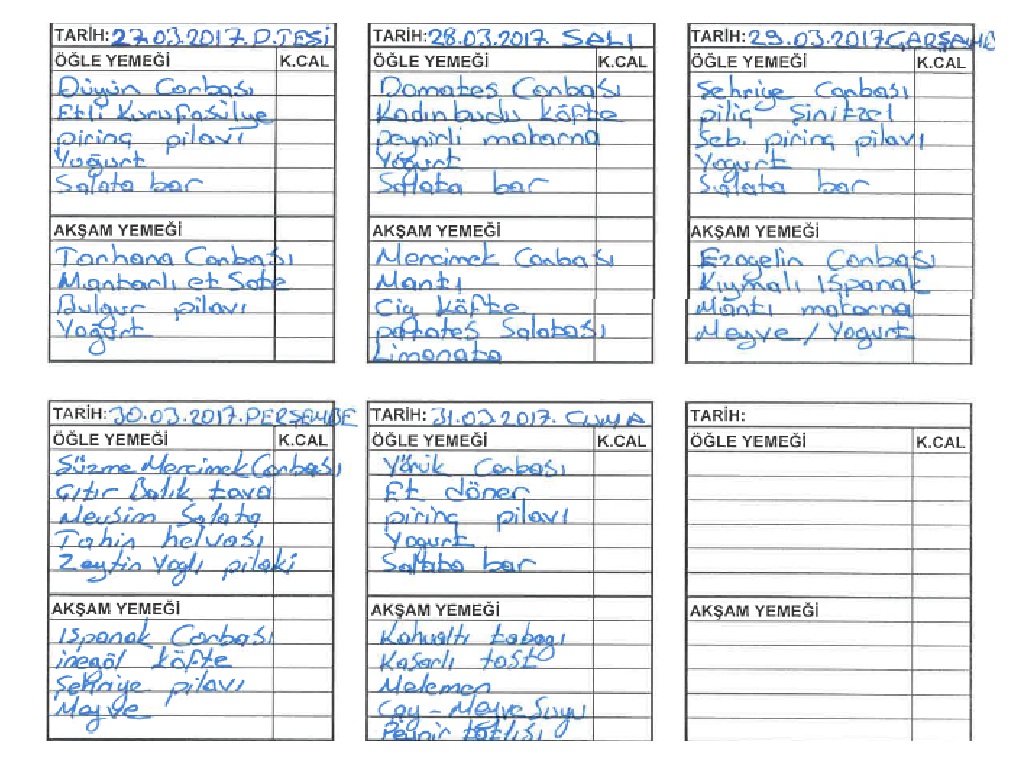 TARİH: 27.03.2017. P.TESİ
ÖĞLE YEMEĞİ K.CAL
Düğün Çorbası
Etli Kurufasülye
pirinç pilavı
Yoğurt
Salata bar
AKŞAM YEMEĞİ
Tarhana Çorbası
Mantarlı et Sote
Bulgur pilavı
Yoğurt
TARİH: 28.03.2017. SALI
ÖĞLE YEMEĞİ K.CAL
Domates Çorbası
Kadınbudu köfte
peynirli makarna
Yoğurt
Salata bar
AKŞAM YEMEĞİ
Mercimek Çorbası
Mantı
Çiğ köfte
patates Salatası
Limonata
TARİH: 29.03.2017 ÇARŞAMB
ÖĞLE YEMEĞİ K.CAL
Şehriye Çorbası
piliç Şinitzel
Seb. pirinç pilavı
Yogurt
Salata bar
AKŞAM YEMEĞİ
Ezogelin Çorbası
Kıymalı Ispanak
Mantı makarna
Meyve / Yogurt
TARİH: 30.03.2017. PERŞEMBE
ÖĞLE YEMEĞİ K.CAL
Süzme Mercimek Çorbası
Çıtır Balık tava
Mevsim Salata
Tahin helvası
Zeytin Yağlı pilaki
AKŞAM YEMEĞİ
Ispanak Çorbası
inegöl köfte
Şehriye pilavı
Meyve
TARİH: 31.03.2017. CUMA
ÖĞLE YEMEĞİ K.CAL
Yörük Çorbası
Et döner
pirinç pilavı
Yogurt
Salata bar
AKŞAM YEMEĞİ
Kahvaltı tabagı
Kaşarlı tost
Melemen
Çay - Meyve Suyu
Peynir tatlısı
TARİH:
ÖĞLE YEMEĞİ K.CAL
AKŞAM YEMEĞİ